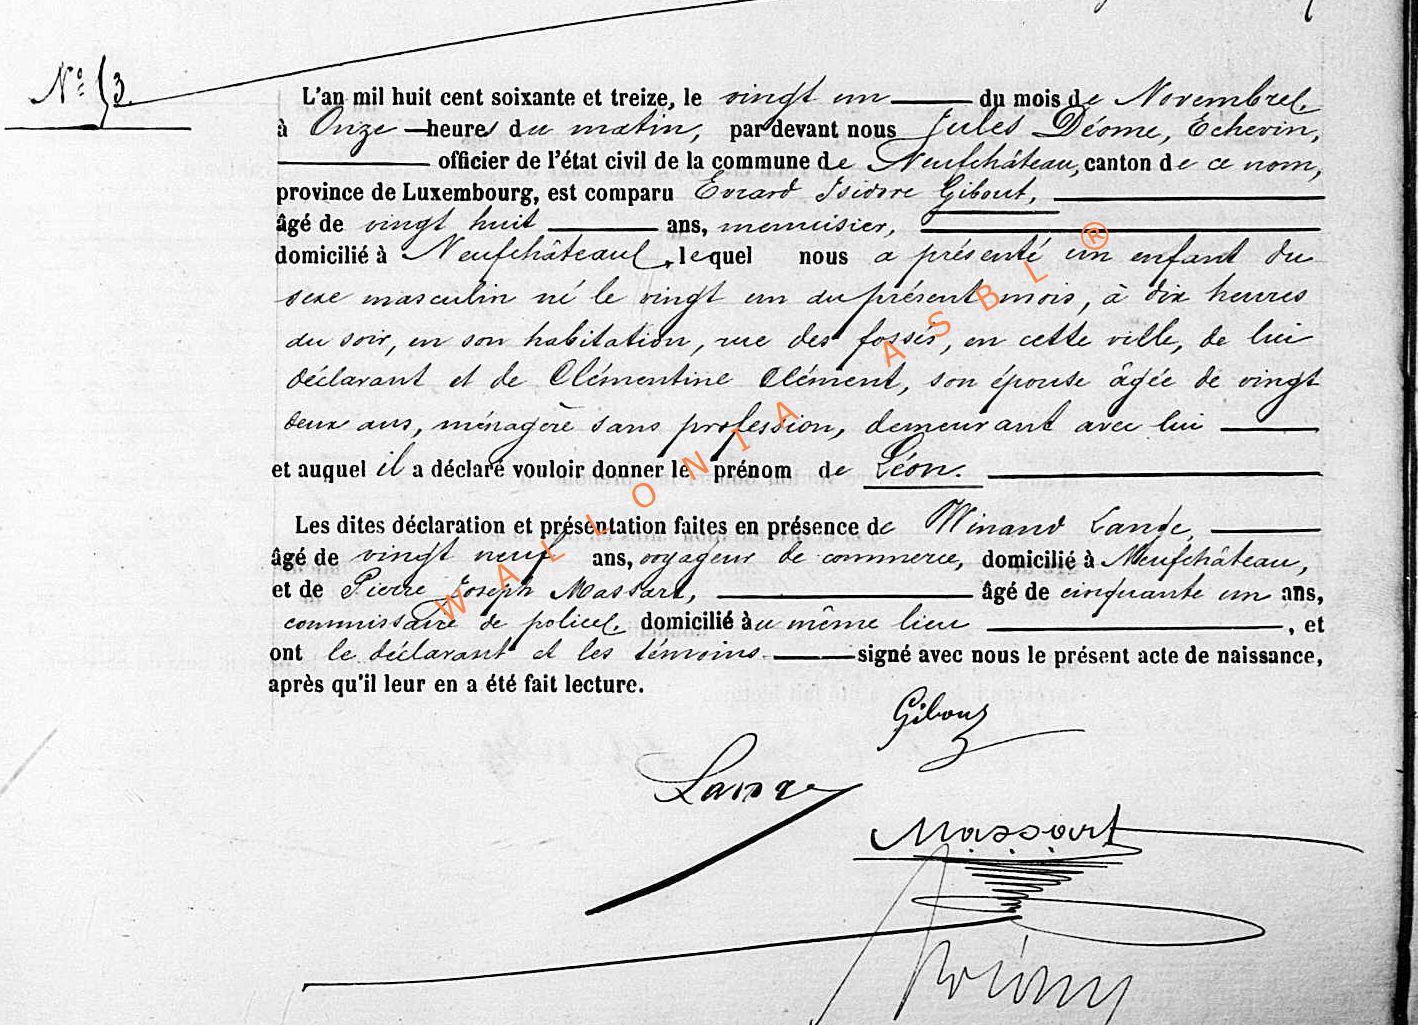 Nº 53
L'an mil huit cent soixante et treize, le vingt un du mois de Novembre
à Onze heures du matin, par devant nous Jules Déome, Echevin,
officier de l'état civil de la commune de Neufchâteau, canton de ce nom,
province de Luxembourg, est comparu Evrard Isidore Gibout,
âgé de vingt huit ans, menuisier,
domicilié à Neufchâteau, lequel nous a présenté un enfant du
sexe masculin né le vingt un du présent mois, à dix heures
du soir, en son habitation, rue des fossés, en cette ville, de lui
déclarant et de Clémentine Clément, son épouse âgée de vingt
deux ans, ménagère sans profession, demeurant avec lui
et auquel il a déclaré vouloir donner le prénom de Léon.
Les dites déclaration et présentation faites en présence de Winand
âgé de vingt neuf ans, voyageur de commerce, domicilié à Neufchâteau,
et de Pierre Joseph Massart, âgé de cinquante un ans,
commissaire de police, domicilié au même lieu , et
ont le déclarant et les témoins signé avec nous le présent acte de naissance,
après qu'il leur en a été fait lecture.
Gibout
Massart
WALLONIA ASBL ®